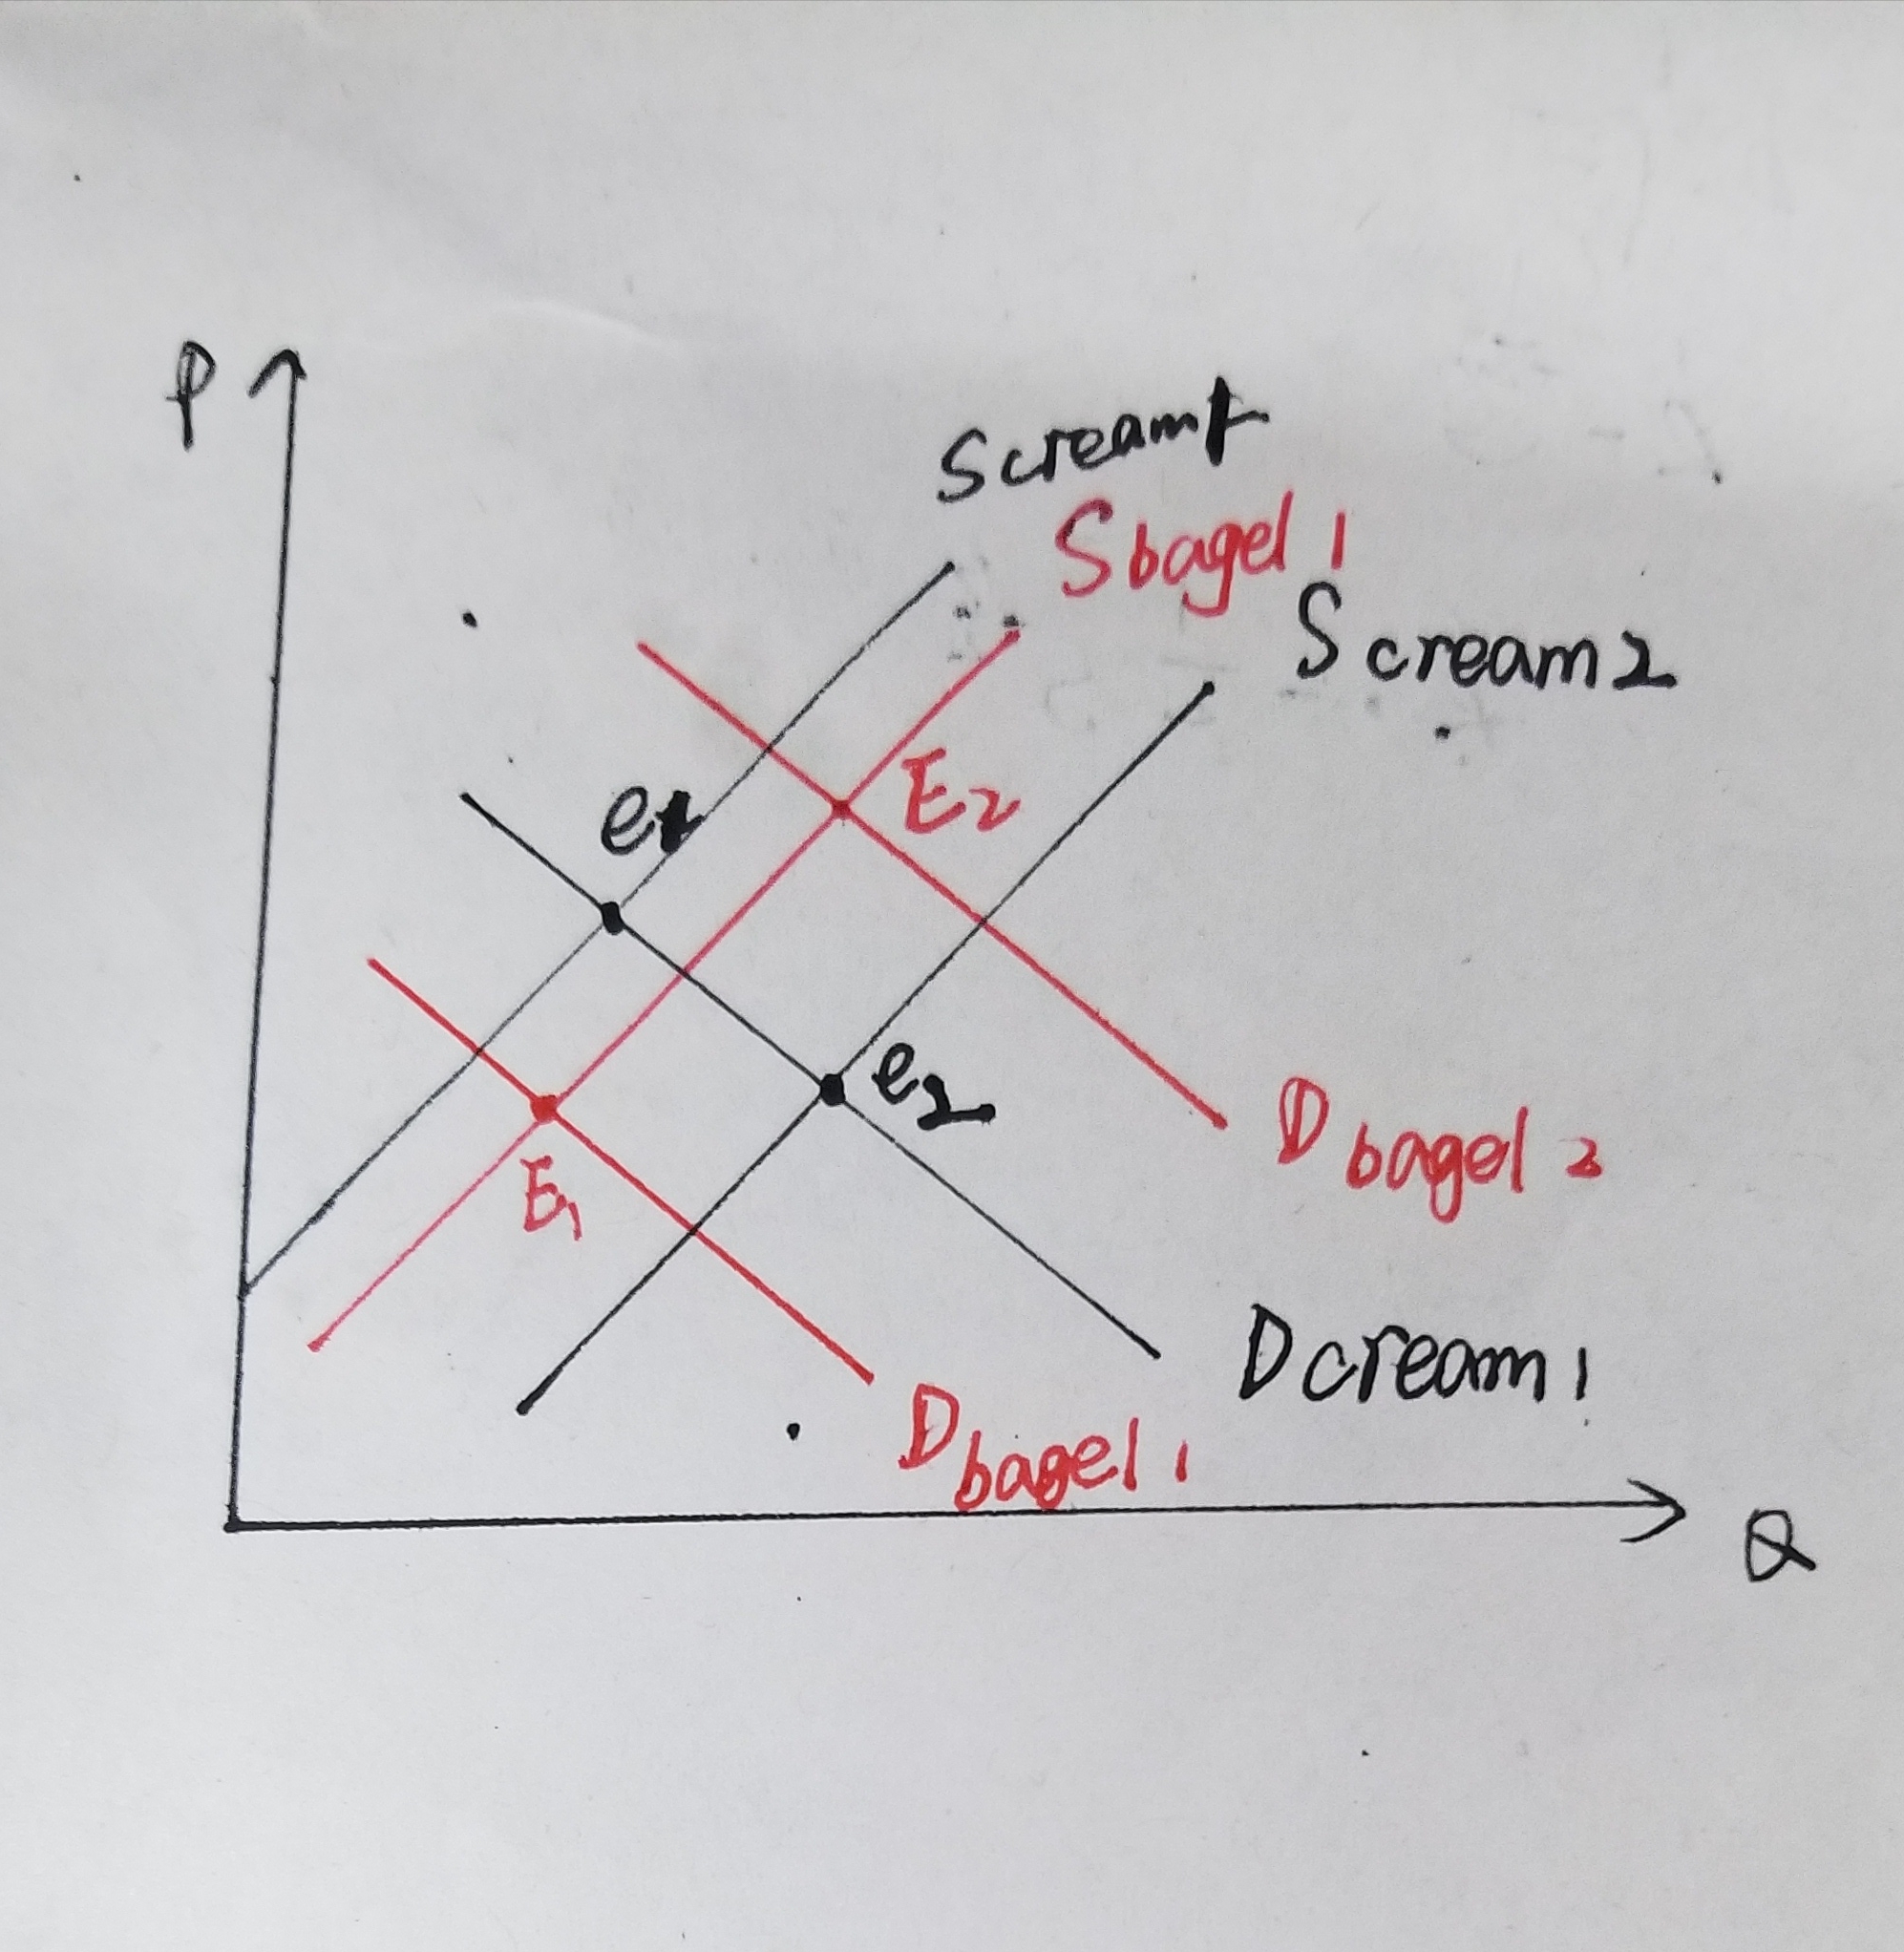 P
Scream1
Sbagel 1
Scream2
E2
e1
e2
Dbagel 2
E1
Dcream1
Dbagel 1
Q